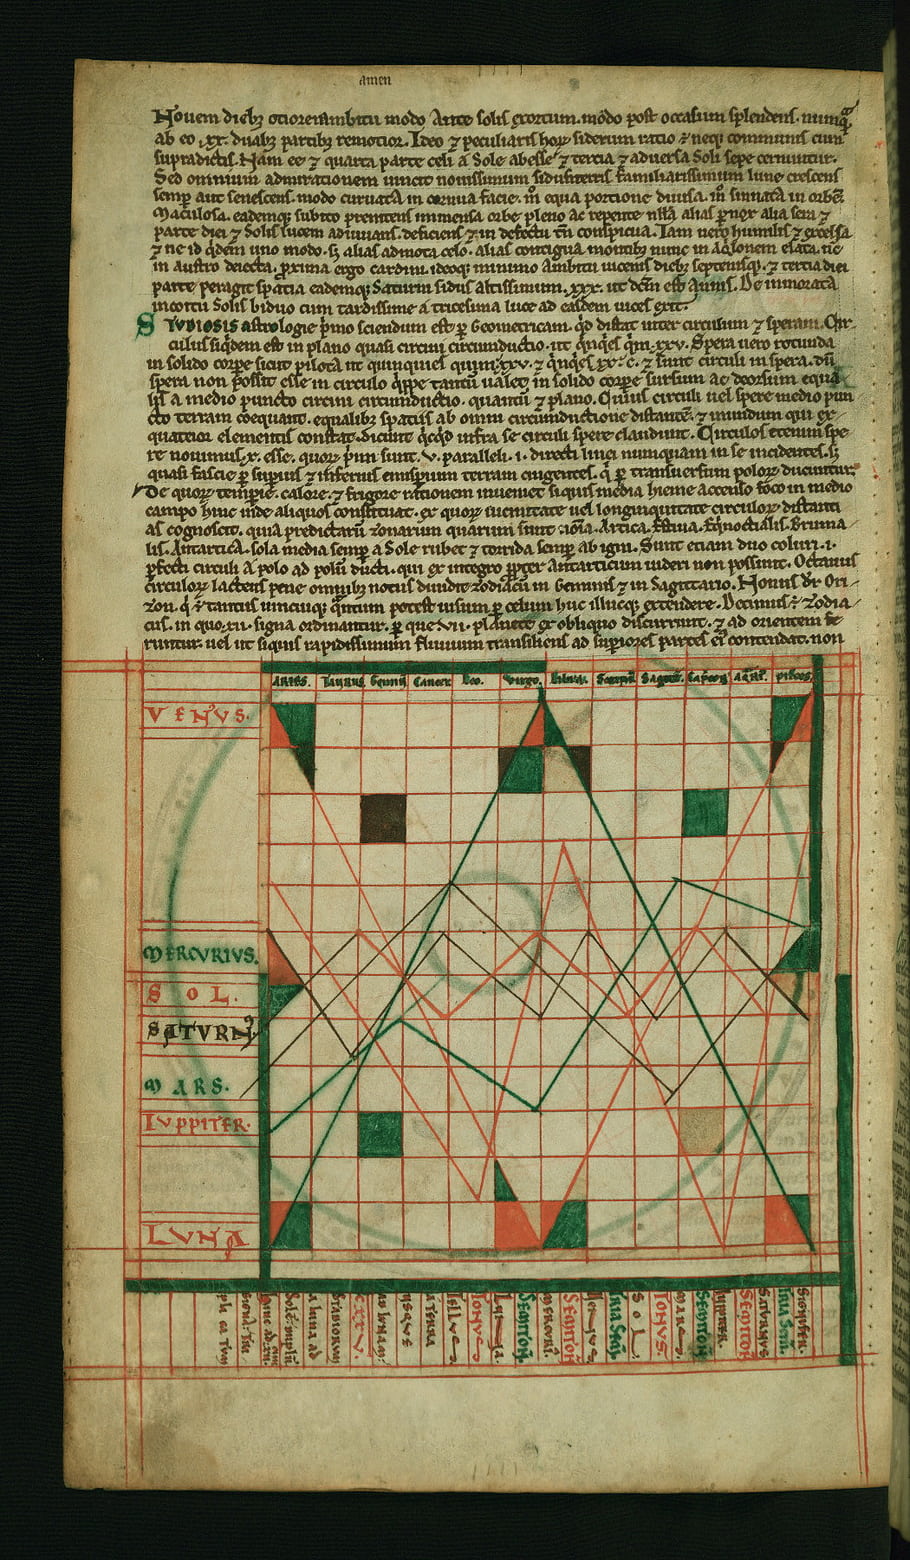 amen
Nouem dieb; ocior ambitu modo Ante solis exortum. modo post occasum splendens. numq̃
ab eo .xx. duab; partib; remotior. Ideo ⁊ peculiaris hoꝝ siderum ratio ẽ neq; communis cum
supradictis. Nam ee ⁊ quarta parte celi a Sole abesse ⁊ tercia ⁊ aduersa Soli sepe cernuntur.
Sed omnium admirationem uincit nouissimum sidus terris familiarissimum lune crescens
semp̃ aut senescens. modo curuata in cornua facie. m̊ equa portione diuisa. m̊ sinuata in orbẽ.
Maculosa. eademq; subito prenitens immensa orbe pleno ac repente nlla alias p̱nox alia sera ⁊
parte diei ⁊ Solis lucem adiuuans. deficiens ⁊ in defectu tñ conspicua. Iam uero humilis ⁊ excelsa
⁊ ne id q̇dem uno modo. s; alias admota celo. alias contigua montib; nunc in Aq̇lonem elata. nc̄
in Austro deiecta. p̱xima ergo cardini. ideoq; minimo Ambitu uicenis dieb; septenisq; ⁊ tercia diei
parte peragit spatia eademq; Saturni sidus altissimum .xxx. ut dc̃m est Annis. De in morata
in coitu Solis biduo cum tardissime a tricesima luce ad easdem uices exit.
STUDIOSIS astrologie p̱mo sciendum est p̱ Geometricam. q̇d distat inter circulum ⁊ speram. Cir
culus siq̇dem est in plano quasi circini circumductio. ut q̇nq̇es q̇ni. xxv. Spera uero rotunda
in solido corpe sicut pilota ut quinquies quini. xxv. ⁊ q̇nq̇es xxv. c̃. ⁊ sunt circuli in spera. dũ
spera non possit esse in circulo q̇ppe tantũ ualet; in solido corpe sursum ac deorsum equa
lis a medio puncto circini circumductio. quantũ ⁊ plano. Cuius circuli uel spere medio pun
cto terram coequant. equalib; spatiis ab omni circumductione distantẽ. ⁊ mundum qui ex
quatuor elementis constat. dicunt q̇cq̇d infra se circuli spere claudunt. Circulos etenim spe
re nouimus .x. esse. quoꝝ p̱mi sunt .v. paralleli .i. directi linei numquam in se incidentes. s;
quasi fascie p̱ supius ⁊ infernus emisp̱ium terram cingentes. q̇ p̱ transuersum poloꝝ ducuntur.
De quoꝝ temp̱ie. calore. ⁊ frigore rationem inueniet siquis media hieme accenso foco in medio
campo hinc inde aliquos constituat. ex quoꝝ uicinitate uel longinquitate circuloꝝ distanti
as cognoscit. quia predictarũ zonarum quarum sunt noĩa. Artica. Estiua. Eq̇noctialis. Bruma
lis. Antartica. sola media semp̱ a Sole rubet ⁊ torrida semp̱ ab igni. Sunt etiam duo coluri .i.
p̱fecti circuli a polo ad polũ ducti. qui ex integro p̱pter Antarticum uideri non possunt. Octauus
circuloꝝ lacteus pene omnib; notus diuidit zodiacũ in Geminis ⁊ in Sagittario. Nonus ÷ Ori
zon. q̇ ẽ tantus uniciuq; q̇ntum potest uisum p̱ celum huc illucq; extendere. Decimus ẽ zodia
cus. in quo .xii. signa ordinantur. p̱ que .vii. planete ex obliquo discurrunt. ⁊ ad orientem fe
runtur. uel ut siquis rapidissimum fluuium transiliens ad supiores partes ei contendat. non
ARIES. Taurus Gemini Cancer Leo. Virgo. Libra. Scorpiu Sagitt. Cap̱corn Aq̇ri. pisces
VENVS.
MERCVRIVS.
SOL.
SATVRN⁹
MARS.
IVPPITER.
LVNA
A TERRA
TELLVS
TONVS
LVNA.
SEMITON.
MERCVRI.
SEMITON.
VENVS
TRIA SEM.
SOL
TONVS.
MARS
SEMITON.
IVPPITER
SEMITON
SATVRNVS
TRIA SEM.
Signifer.